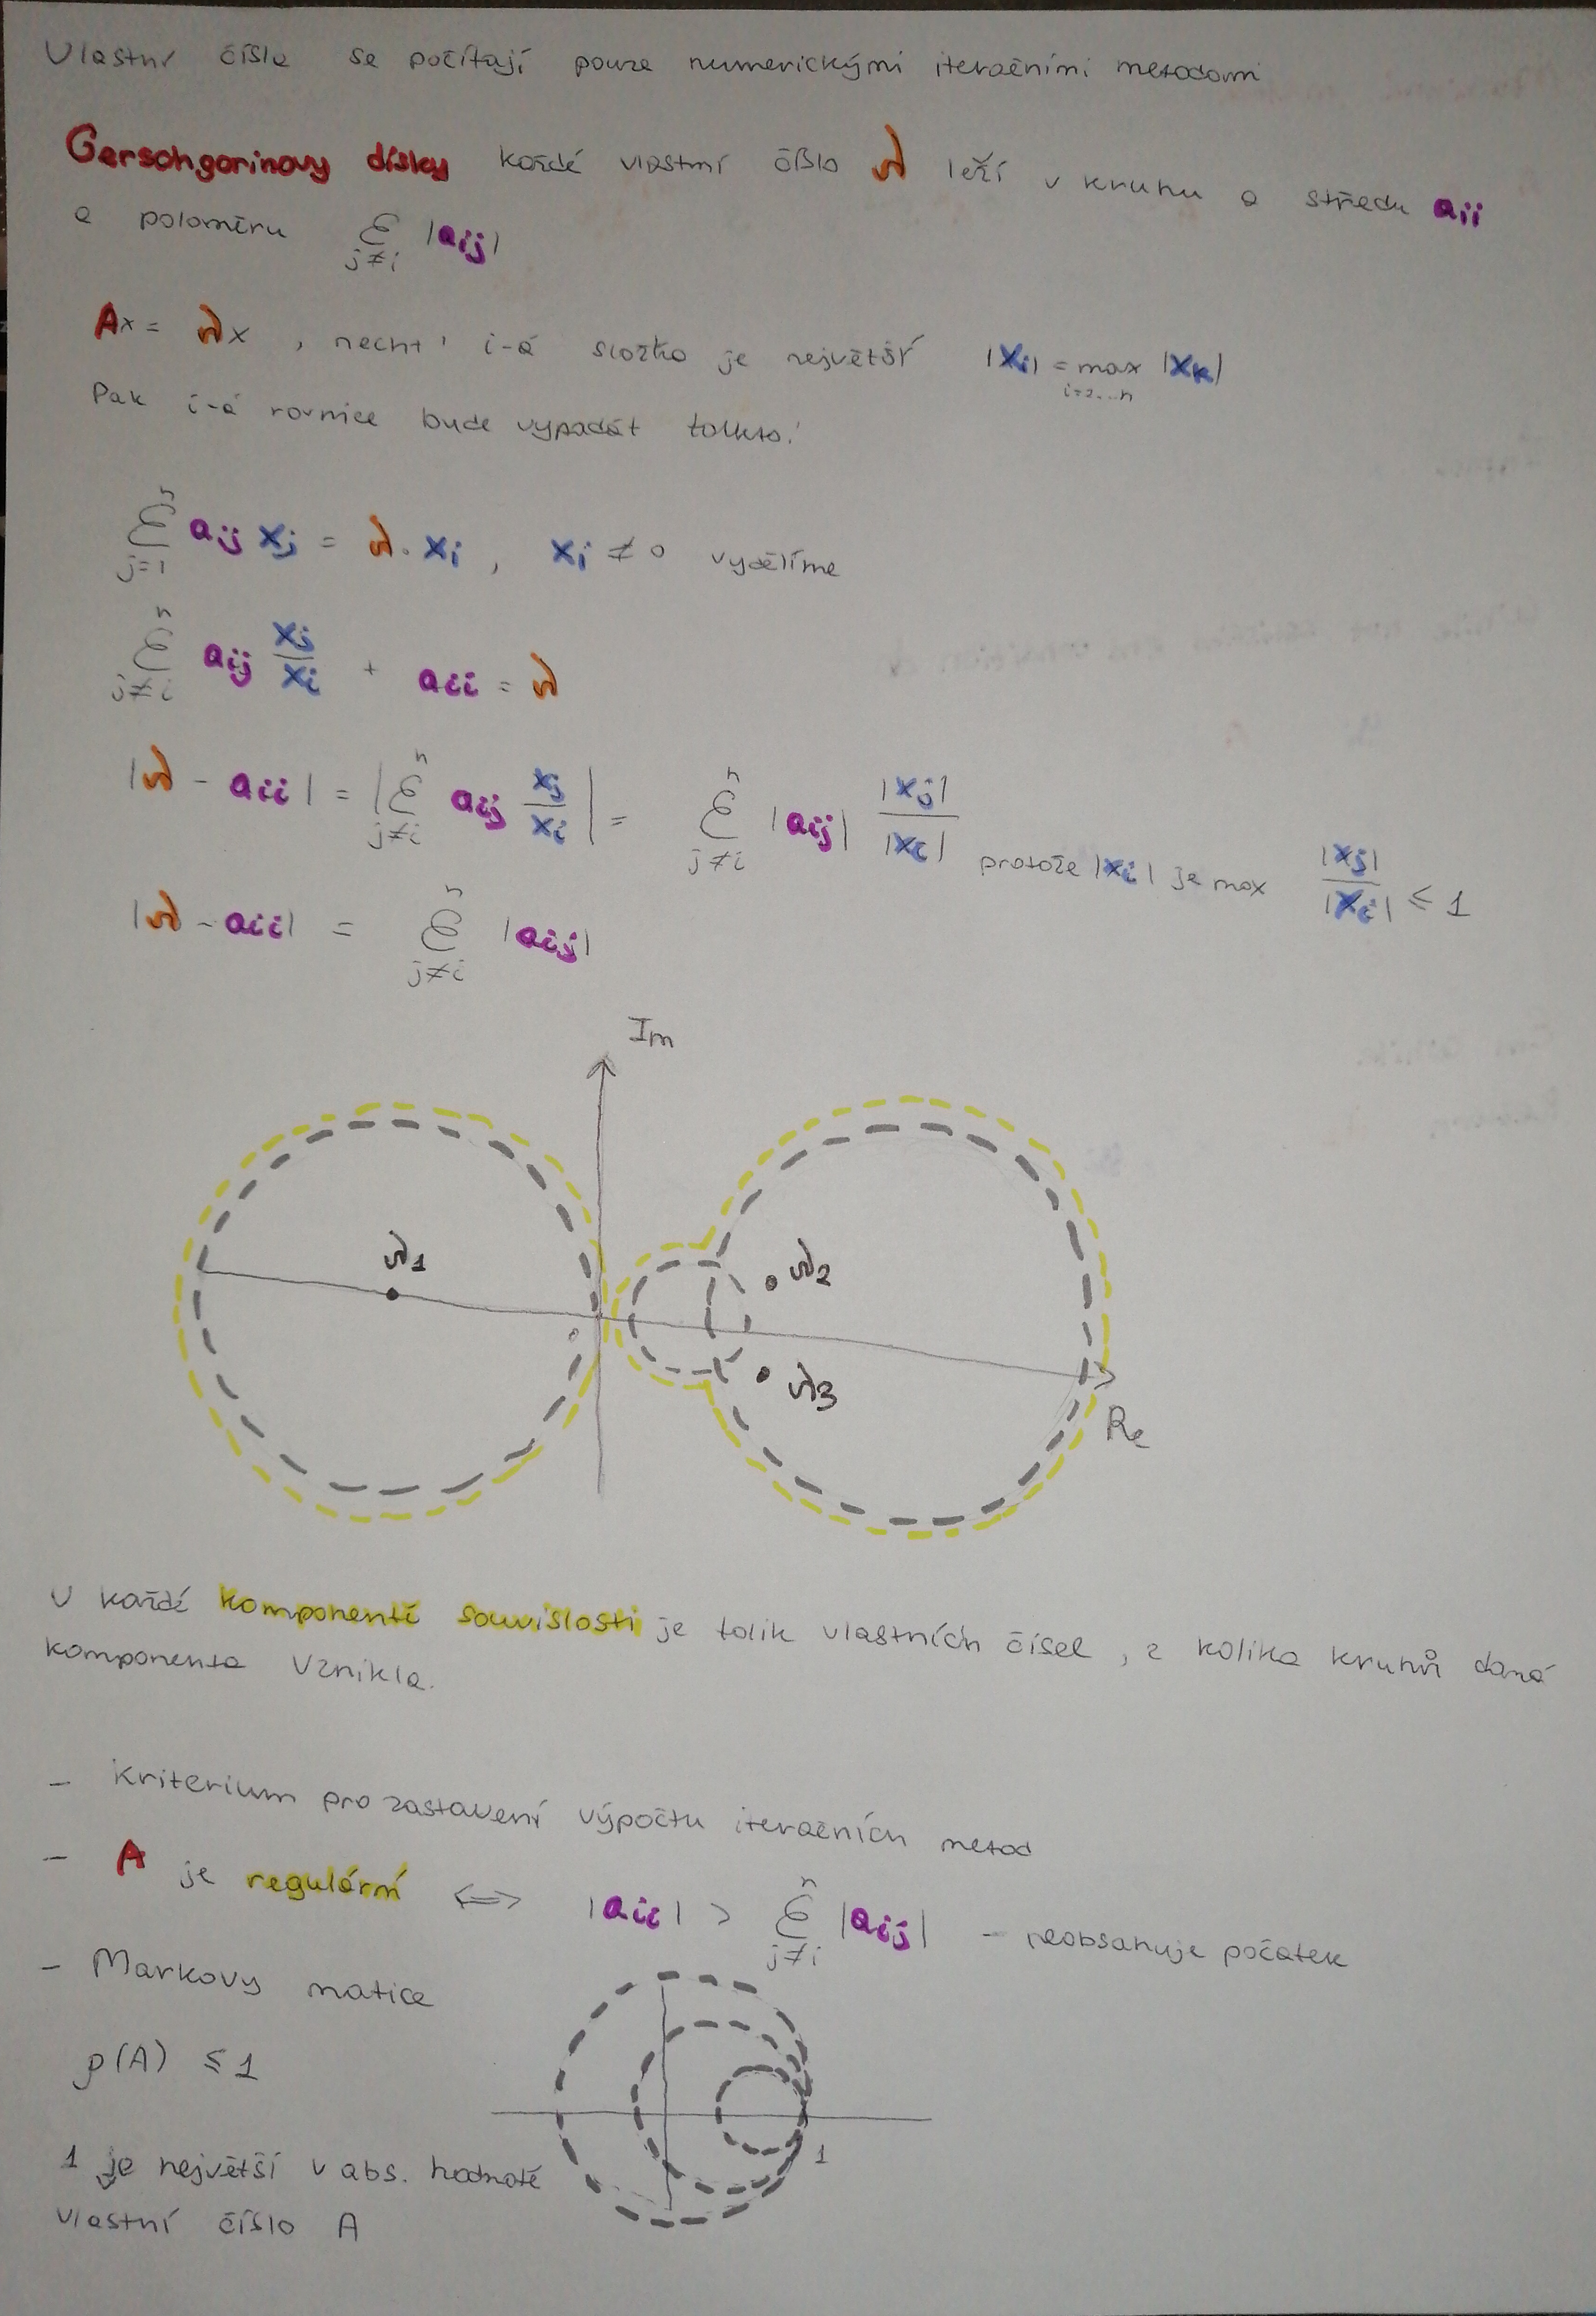 Vlastní čísla se počítají pouze numerickými iteračními metodami
Gerschgorinovy disky každé vlastní číslo λ leží v kruhu o středu aii
a poloměru Σ j≠i |aij|
Ax = λx , nechť i-á složka je největší |xi| = max i=2...n |xk|
Pak i-á rovnice bude vypadát takto:
Σ j=1 n aij xj = λ · xi , xi ≠ 0 vydělíme
Σ j≠i n aij xj/xi + aii = λ
|λ - aii| = |Σ j≠i n aij xj/xi| = Σ j≠i n |aij| |xj|/|xi| protože |xi| je max |xj|/|xi| ≤ 1
|λ - aii| = Σ j≠i n |aij|
Im
λ1
λ2
λ3
Re
V každé komponentě souvislosti je tolik vlastních čísel , z kolika kruhů daná
komponenta vznikla.
- Kriterium pro zastavení výpočtu iteračních metod
- A je regulární <=> |aii| > Σ j≠i n |aij| - neobsahuje počátek
- Markovy matice
ρ(A) ≤ 1
1
1 je největší v abs. hodnotě
vlastní číslo A